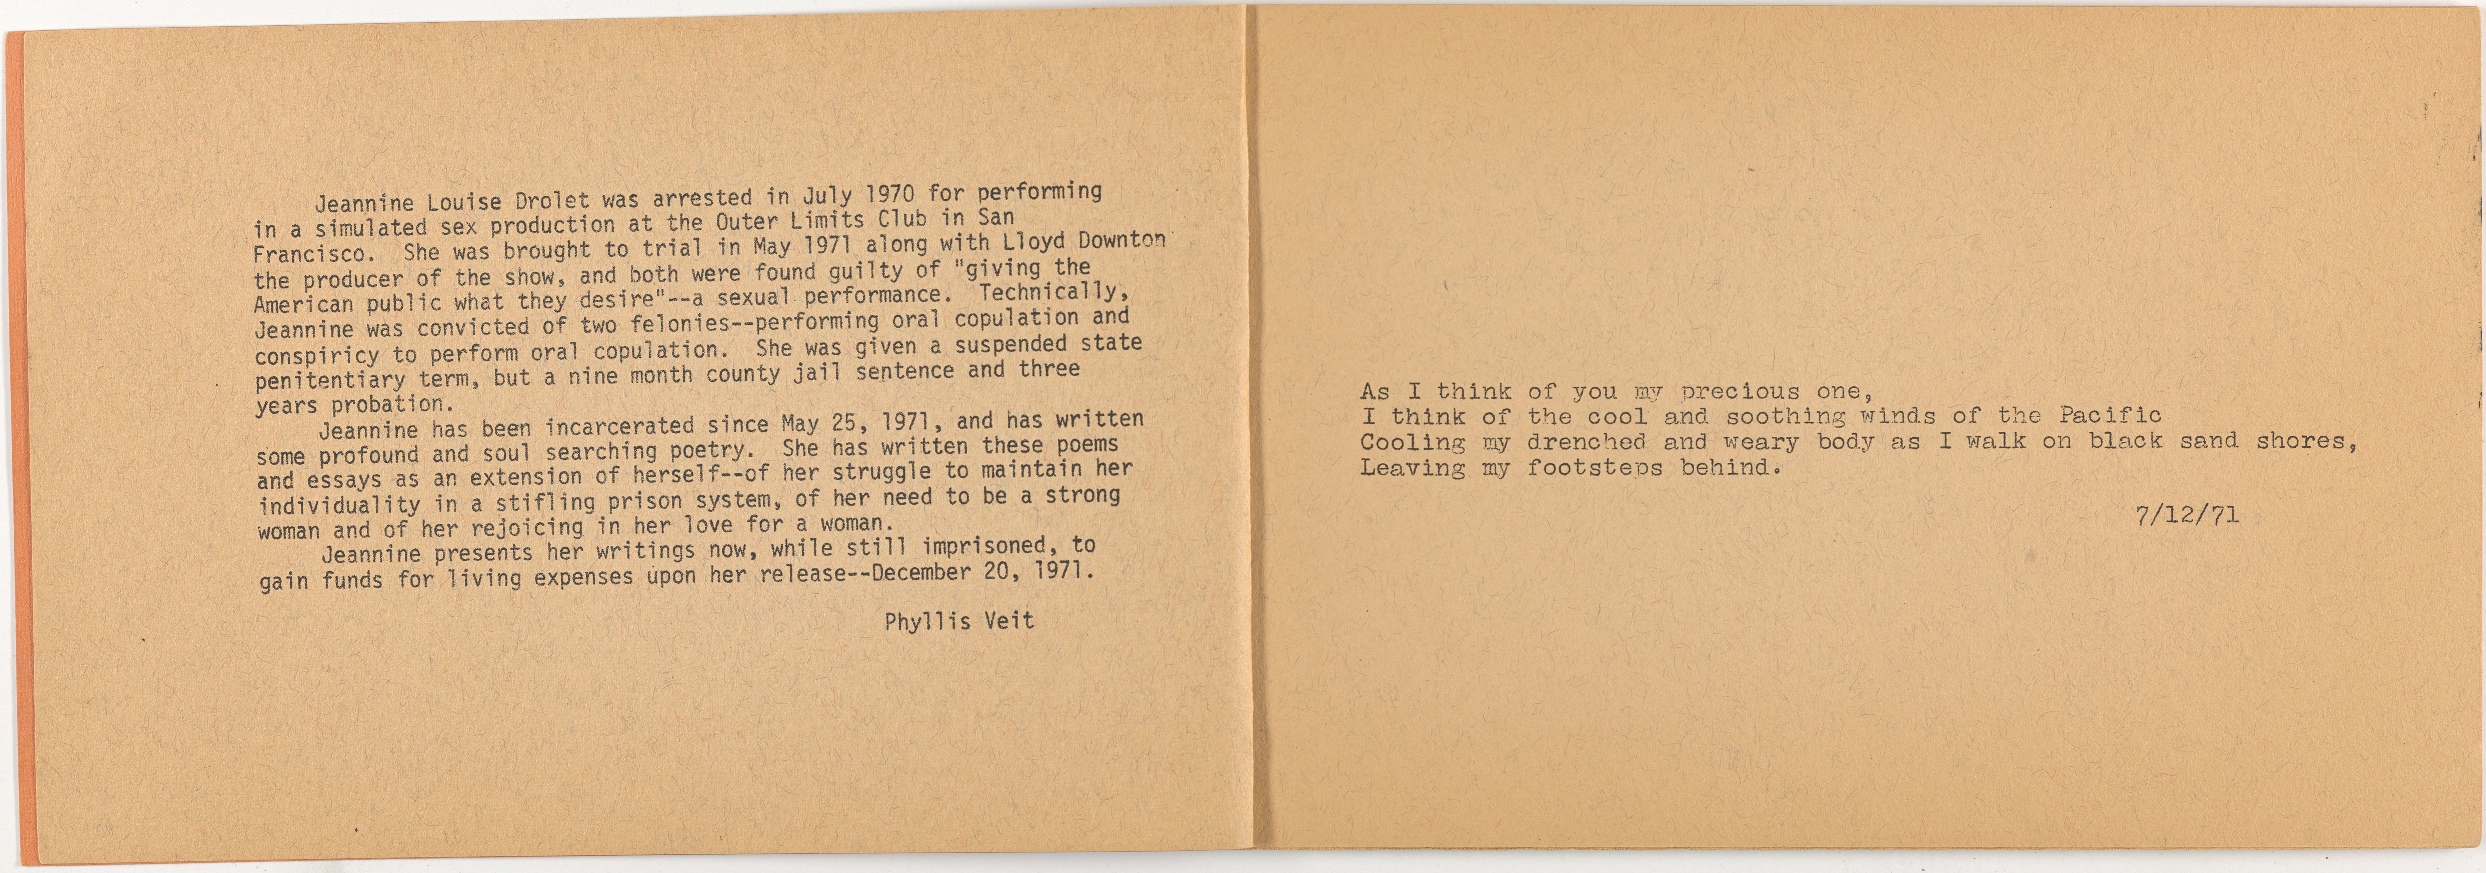 Jeannine Louise Drolet was arrested in July 1970 for performing
in a simulated sex production at the Outer Limits Club in San
Francisco.  She was brought to trial in May 1971 along with Lloyd Downton
the producer of the show, and both were found guilty of "giving the
American public what they desire"--a sexual performance.  Technically,
Jeannine was convicted of two felonies--performing oral copulation and
conspiricy to perform oral copulation.  She was given a suspended state
penitentiary term, but a nine month county jail sentence and three
years probation.
Jeannine has been incarcerated since May 25, 1971, and has written
some profound and soul searching poetry.  She has written these poems
and essays as an extension of herself--of her struggle to maintain her
individuality in a stifling prison system, of her need to be a strong
woman and of her rejoicing in her love for a woman.
Jeannine presents her writings now, while still imprisoned, to
gain funds for living expenses upon her release--December 20, 1971.
Phyllis Veit
As I think of you my precious one,
I think of the cool and soothing winds of the Pacific
Cooling my drenched and weary body as I walk on black sand shores,
Leaving my footsteps behind.
7/12/71